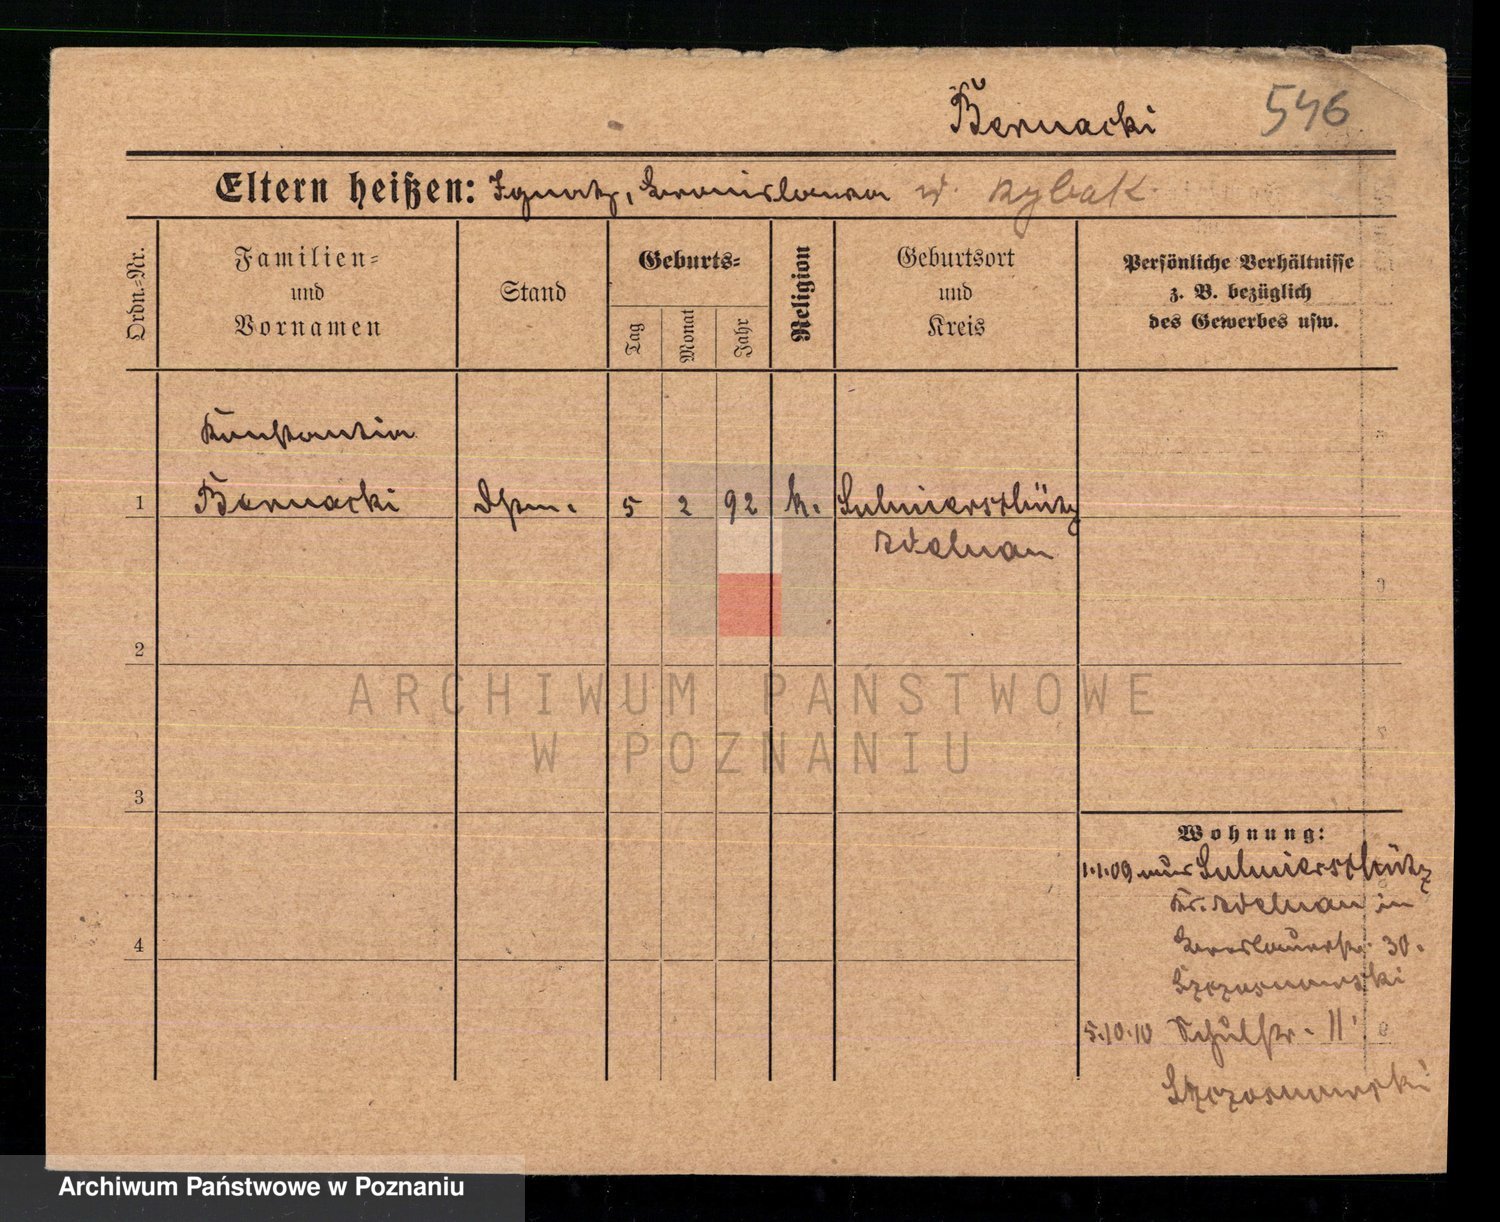 Bernacki 546
Eltern heißen: Ignatz, Bronislawa d. Rybak.
Ordn.-Nr.
Familien-
und
Vornamen
Stand
Geburts-
Tag
Monat
Jahr
Religion
Geburtsort
und
Kreis
Persönliche Verhältnisse
z. B. bezüglich
des Gewerbes usw.
Konstantin
1 Bernacki 5 2 92 k. Sulmierschütz
Adelnau
2
ARCHIWUM PAŃSTWOWE
W POZNANIU
3
Wohnung:
1.1.09 aus Sulmierschütz
Kr. Adelnau in
4 Breslauerstr. 30.
Szczesnowski
5.10.10 Schulstr. 11
Szczesnowski
Archiwum Państwowe w Poznaniu